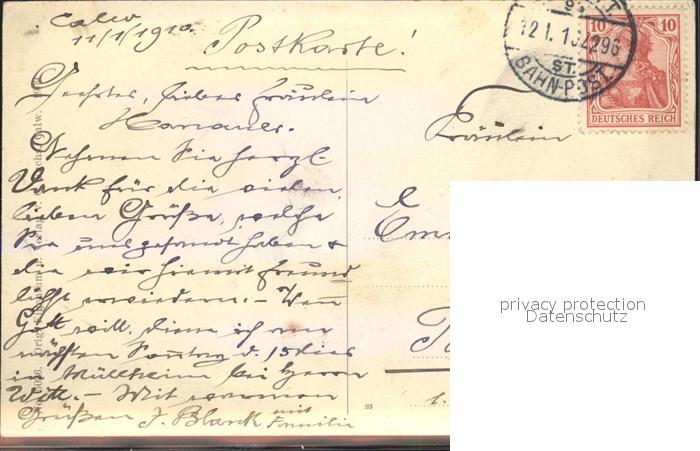 Calw
11/1/1910.
Postkarte!
Geehrtes, liebes Fräulein
Hanauer.
Nehmen Sie herzl.
Dank für die vielen,
lieben Grüße, welche
Sie uns gesandt haben &
die wir hiermit freund
lichst erwiedern. – Wenn
Gott will, diene ich am
nächsten Sonntag d. 15 dies
in Müllheim bei Herrn
Witt. – Mit warmen
Grüßen J. Blanck mit
Familie
Fräulein
Em
12.1.1
296
ST.
BAHN-POST.
10 10
DEUTSCHES REICH
93
privacy protection
Datenschutz